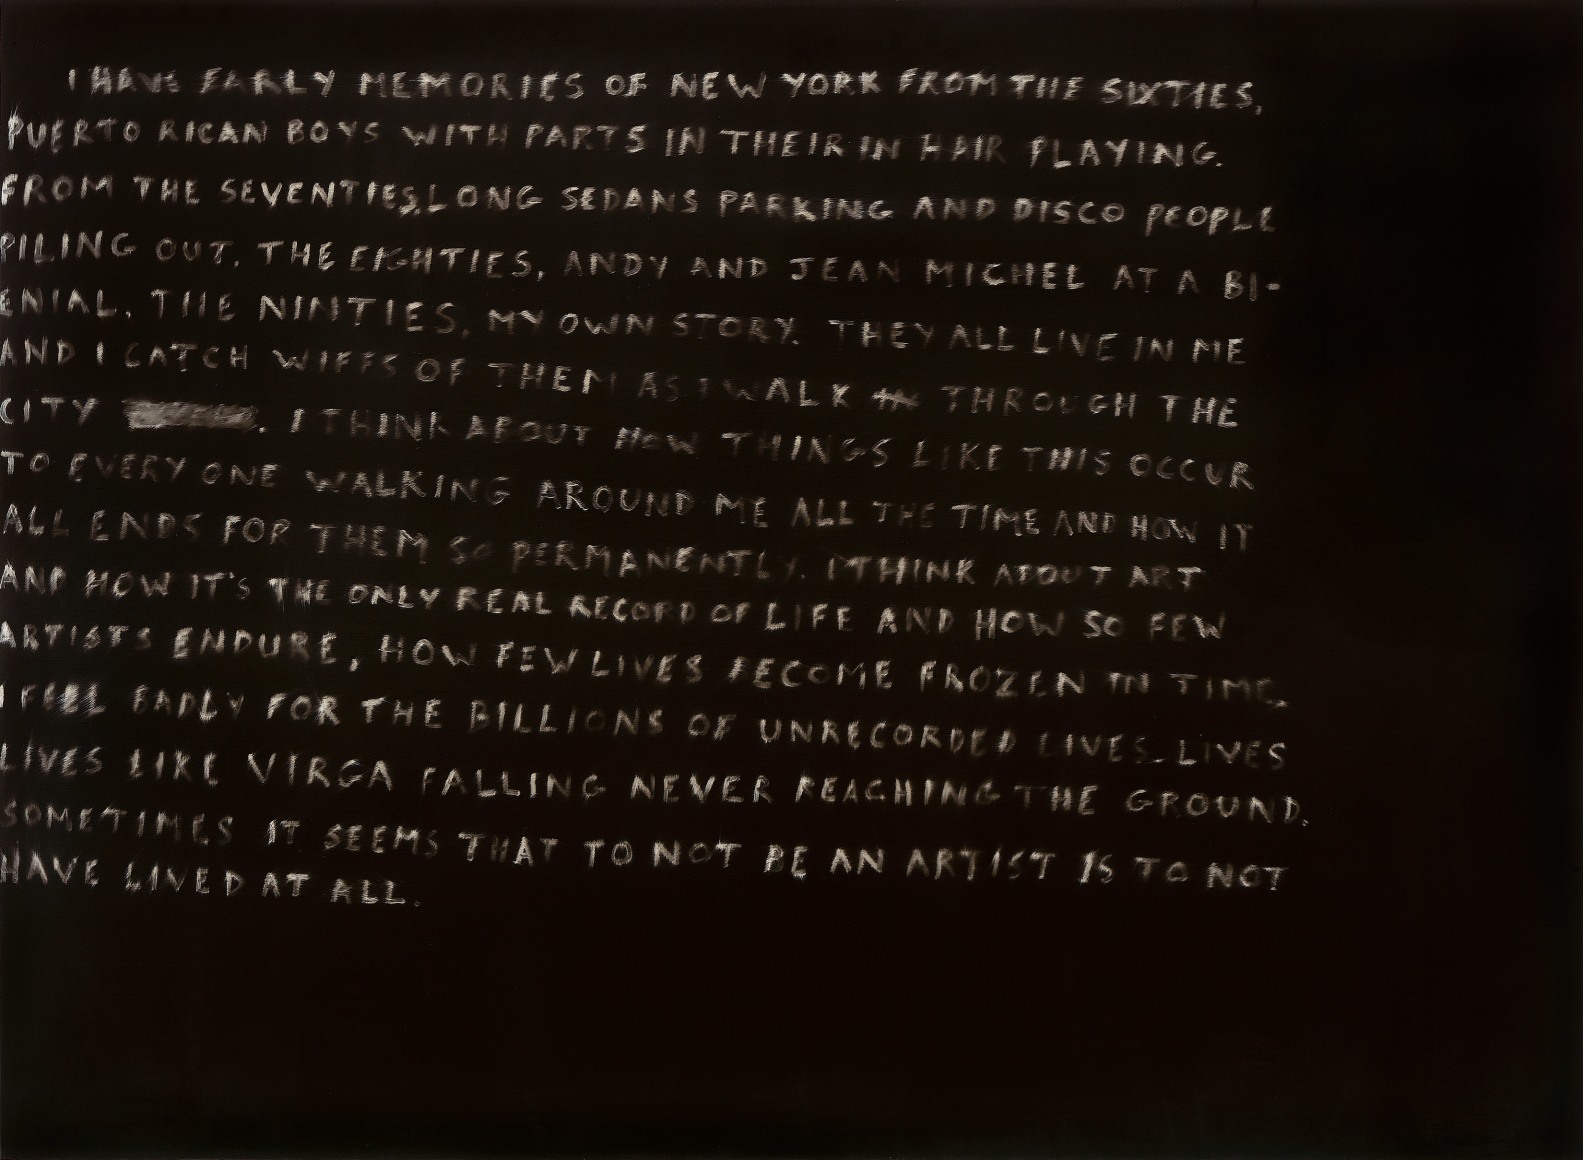 I HAVE EARLY MEMORIES OF NEW YORK FROM THE SIXTIES,
PUERTO RICAN BOYS WITH PARTS IN THEIR IN HAIR PLAYING.
FROM THE SEVENTIES, LONG SEDANS PARKING AND DISCO PEOPLE
PILING OUT. THE EIGHTIES, ANDY AND JEAN MICHEL AT A BI-
ENIAL. THE NINTIES, MY OWN STORY. THEY ALL LIVE IN ME
AND I CATCH WIFFS OF THEM AS I WALK THROUGH THE
CITY . I THINK ABOUT HOW THINGS LIKE THIS OCCUR
TO EVERY ONE WALKING AROUND ME ALL THE TIME AND HOW IT
ALL ENDS FOR THEM SO PERMANENTLY. I THINK ABOUT ART
AND HOW IT'S THE ONLY REAL RECORD OF LIFE AND HOW SO FEW
ARTISTS ENDURE, HOW FEW LIVES BECOME FROZEN IN TIME.
I FEEL BADLY FOR THE BILLIONS OF UNRECORDED LIVES. LIVES
LIVES LIKE VIRGA FALLING NEVER REACHING THE GROUND.
SOMETIMES IT SEEMS THAT TO NOT BE AN ARTIST IS TO NOT
HAVE LIVED AT ALL.